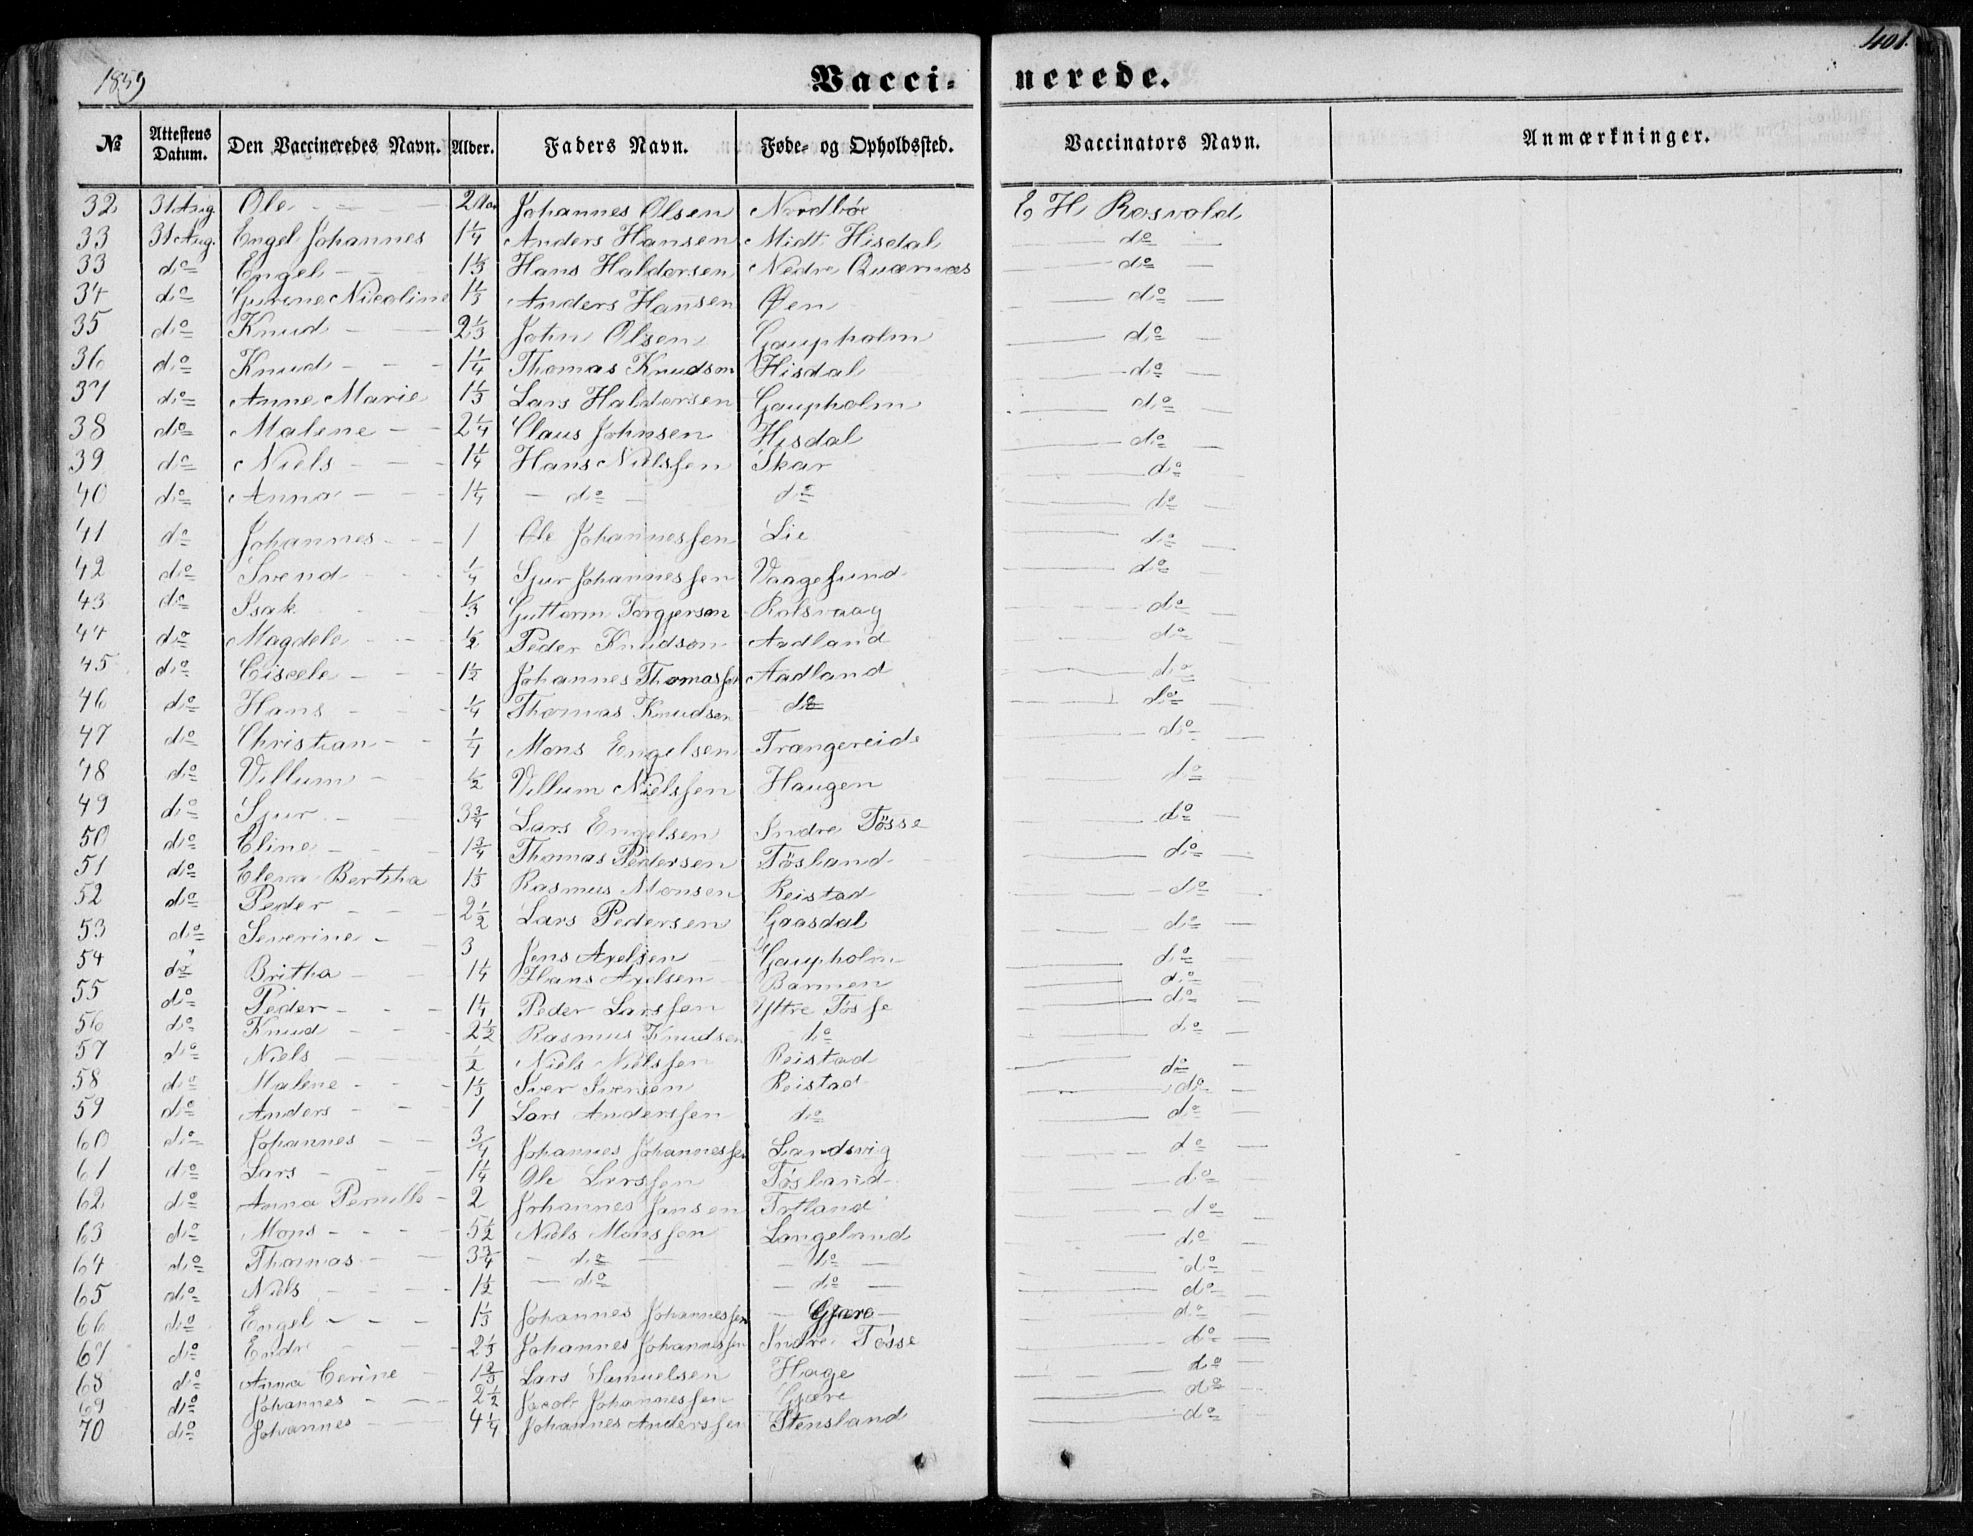 1859 Vaccinerede. 401.
№ Attestens Datum. Den Vaccineredes Navn. Alder. Faders Navn. Føde- og Opholdssted. Vaccinators Navn. Anmærkninger.
32 31 Aug. Ole - - - Johannes Olsen Nordbøe E H Rosvold
33 31 Aug. Engel Johannes 1¼ Anders Hansen Midt Hisdal do
33 do Engel - - 1⅓ Hans Haldorsen Nedre Quærnæs do
34 do Gurine Nicoline 1⅓ Anders Hansen Øen do
35 do Knud - - 2⅓ John Olsen Gaupholm do
36 do Knud - - 1¼ Thomas Knudsen Hisdal do
37 do Anne Marie 1⅓ Lars Haldorsen Gaupholm do
38 do Malene - - 2¼ Claus Johnsen Hisdal do
39 do Niels - - - 1¼ Hans Nielssen Skar do
40 do Anna - - - 1¼ - do - do do
41 do Johannes - - 1 Ole Johannessen Lie do
42 do Svend - - - ¼ Sjur Johannessen Vaagesund do
43 do Isak ⅓ Guttorm Torgersen Rolsvaag do
44 do Magdele - - - ½ Peder Knudson Aadland do
45 do Ciscele - - - 1½ Johannes Thomassen Aadland do
46 do Hans - - - ¼ Thomas Knudsen do do
47 do Christian - - ¼ Mons Engelsen Trængereid do
48 do Villum - - ½ Villum Nielssen Haugen do
49 do Sjur - - 3¾ Lars Engelsen Indre Tösse do
50 do Eline - - - 1¾ Thomas Pedersen Tösland do
51 do Elena Bertha 1⅓ Rasmus Monsen Reistad do
52 do Peder - - - 2½ Lars Pedersen Gaasdal do
53 do Severine - - 3 Jens Axelsen Gaupholm do
54 do Britha - - - 1¼ Hans Axelsen Barmen do
55 do Peder - - - 1¼ Peder Larssen Yttre Tösse do
56 do Knud - - - 2½ Rasmus Knudsen do do
57 do Niels - - - ½ Niels Nielssen Reistad do
58 do Malene - - - 1⅓ Iver Iversen Reistad do
59 do Anders - - - 1 Lars Anderssen do do
60 do Johannes - - ¾ Johannes Johannessen Landsvig do
61 do Lars - - - 1¼ Ole Larssen Tösland do
62 do Anna Pernille - 2 Johannes Jansen do
63 do Mons - - - - 5½ Niels Monssen Langeland do
64 do Thomas - - 3¾ - do - - do - do
65 do Niels - - - 1½ - do - do - do
66 do Engel - - - 1⅓ Johannes Johannessen - Gjære - do
67 do Endre - - - 2⅓ Johannes Johannessen Indre Tösse do
68 do Anna Cerine - 1⅔ Lars Samuelsen Hage do
69 do Johannes - - - 2½ Jacob Johannessen Gjære do
70 do Johannes - - 4¼ Johannes Anderssen Stensland do